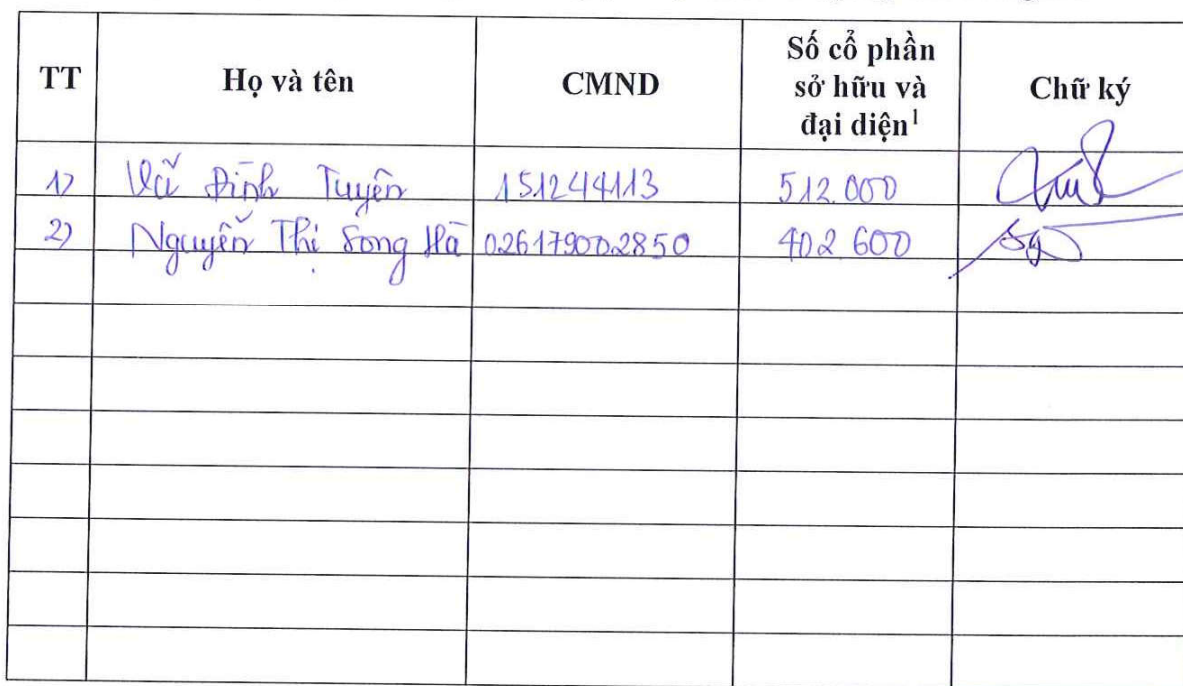 TT Họ và tên CMND Số cổ phần sở hữu và đại diện¹ Chữ ký
1) Vũ Đình Tuyên 151244113 512.000
2) Nguyễn Thị Song Hà 026179002850 402.600